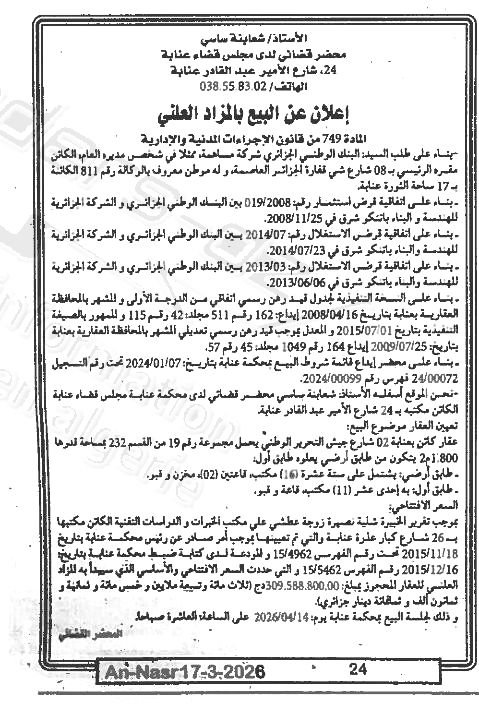 الأستاذ/ شعابنة ساسي
محضر قضائي لدى مجلس قضاء عنابة
24، شارع الأمير عبد القادر عنابة
الهاتف/ 038.55.83.02
إعلان عن البيع بالمزاد العلني
المادة 749 من قانون الإجراءات المدنية والإدارية
-بناء على طلب السيد: البنك الوطني الجزائري شركة مساهمة، ممثلا في شخص مديره العام، الكائن
مقره الرئيسي بـ 08 شارع شي قفارة الجزائر العاصمة، و له موطن معروف بالوكالة رقم 811 الكائنة
بـ 17 ساحة الثورة عنابة.
- بناء على اتفاقية قرض استثمار رقم: 019/2008 بين البنك الوطني الجزائري و الشركة الجزائرية
للهندسة و البناء باتنكو شرق في 2008/11/25.
- بناء على اتفاقية قرض الاستغلال رقم: 2014/07 بين البنك الوطني الجزائري و الشركة الجزائرية
للهندسة والبناء باتنكو شرق في 2014/07/23.
- بناء على اتفاقية قرض الاستغلال رقم: 2013/03 بين البنك الوطني الجزائري و الشركة الجزائرية
للهندسة والبناء باتنكو شرق في 2013/06/06.
- بناء على النسخة التنفيذية لجدول قيد رهن رسمي اتفاقي من الدرجة الأولى و المشهر بالمحافظة
العقارية بعنابة بتاريخ 2008/04/16 إيداع: 162 رقم 511 مجلد: 42 رقم 115 و الممهور بالصيغة
التنفيذية بتاريخ 2015/07/01 و المعدل بموجب قيد رهن رسمي تعديلي المشهر بالمحافظة العقارية بعنابة
بتاريخ: 2009/07/25 إيداع 164 رقم 1049 مجلد: 45 رقم 57.
- بناء على محضر إيداع قائمة شروط البيع بمحكمة عنابة بتاريخ: 2024/01/07 تحت رقم التسجيل
24/00072 فهرس رقم 2024/00099.
-نحن الموقع أسفله الأستاذ: شعابنة ساسي محضر قضائي لدى محكمة عنابة مجلس قضاء عنابة
الكائن مكتبه بـ 24 شارع الأمير عبد القادر عنابة.
تعيين العقار موضوع البيع:
عقار كائن بعنابة 02 شارع جيش التحرير الوطني يحمل مجموعة رقم 19 من القسم 232 بمساحة قدرها
1.800م2 يتكون من طابق أرضي يعلوه طابق أول:
- طابق أرضي: يشتمل على ستة عشرة (16) مكتب، قاعتين (02)، مخزن و قبو.
- طابق أول: به إحدى عشر (11) مكتب، قاعة و قبو.
السعر الافتتاحي:
بموجب تقرير الخبيرة شلية نصيرة زوجة عطشي علي مكتب الخبرات و الدراسات التقنية الكائن مكتبها
بـ 26 شارع كبار علاوة عنابة والتي تم تعيينها بموجب أمر صادر عن رئيس محكمة عنابة بتاريخ
2015/11/18 تحت رقم الفهرس 15/4962 و المودعة لدى كتابة ضبط محكمة عنابة بتاريخ:
2015/12/16 رقم الفهرس 15/5462 و التي حددت السعر الافتتاحي والأساسي الذي سيبدأ به المزاد
العلني للعقار المحجوز بمبلغ: 309.588.800.00دج (ثلاث مائة وتسعة ملايين و خمس مائة و ثمانية و
ثمانون ألف و ثمانمائة دينار جزائري).
و ذلك لجلسة البيع بمحكمة عنابة يوم: 2026/04/14 على الساعة: العاشرة صباحا.
المحضر القضائي
An-Nasr17-3-2026
24